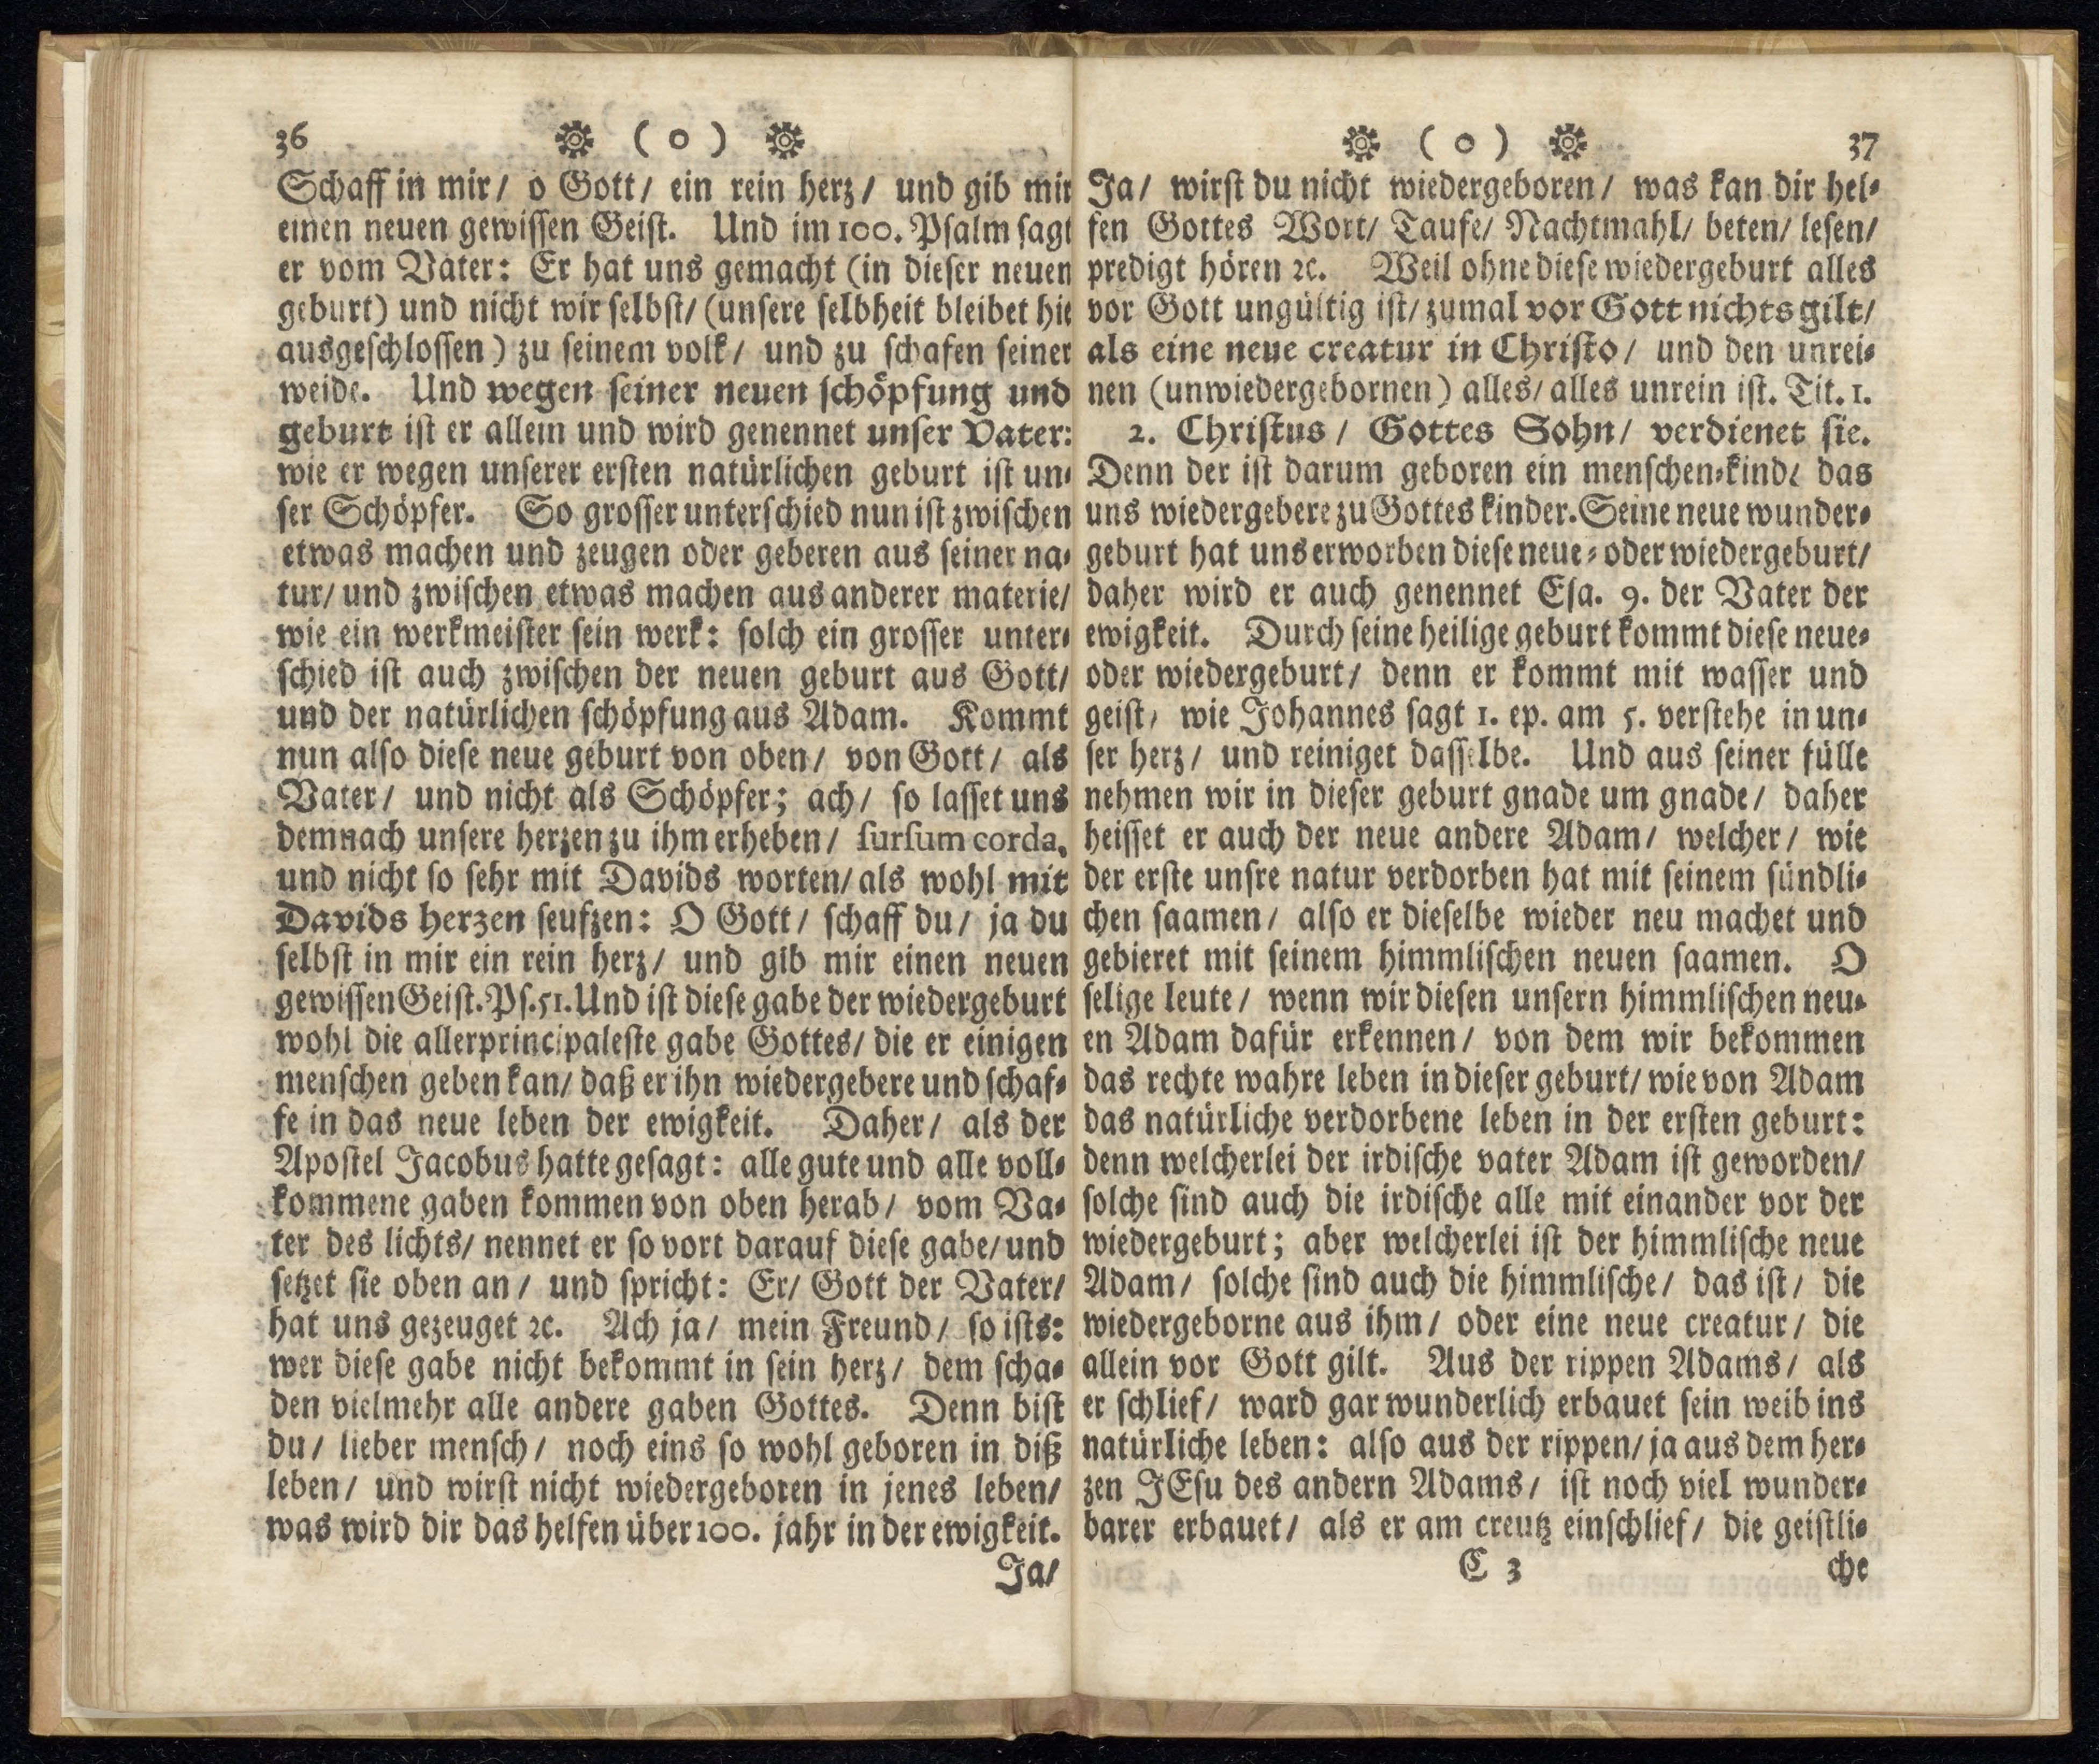 36 ( o )
Schaff in mir/ o Gott/ ein rein herz/ und gib mir
einen neuen gewissen Geist. Und im 100. Psalm sagt
er vom Vater: Er hat uns gemacht (in dieser neuen
geburt) und nicht wir selbst/ (unsere selbheit bleibet hie
ausgeschlossen) zu seinem volk/ und zu schafen seiner
weide. Und wegen seiner neuen schöpfung und
geburt ist er allein und wird genennet unser Vater:
wie er wegen unserer ersten natürlichen geburt ist un-
ser Schöpfer. So grosser unterschied nun ist zwischen
etwas machen und zeugen oder geberen aus seiner na-
tur/ und zwischen etwas machen aus anderer materie/
wie ein werkmeister sein werk: solch ein grosser unter-
schied ist auch zwischen der neuen geburt aus Gott/
und der natürlichen schöpfung aus Adam. Kommt
nun also diese neue geburt von oben/ von Gott/ als
Vater/ und nicht als Schöpfer; ach/ so lasset uns
demnach unsere herzen zu ihm erheben/ sursum corda,
und nicht so sehr mit Davids worten/ als wohl mit
Davids herzen seufzen: O Gott/ schaff du/ ja du
selbst in mir ein rein herz/ und gib mir einen neuen
gewissen Geist. Ps. 51. Und ist diese gabe der wiedergeburt
wohl die allerprincipaleste gabe Gottes/ die er einigen
menschen geben kan/ daß er ihn wiedergebere und schaf-
fe in das neue leben der ewigkeit. Daher/ als der
Apostel Jacobus hatte gesagt: alle gute und alle voll-
kommene gaben kommen von oben herab/ vom Va-
ter des lichts/ nennet er so vort darauf diese gabe/ und
setzet sie oben an/ und spricht: Er/ Gott der Vater/
hat uns gezeuget ꝛc. Ach ja/ mein Freund/ so ists:
wer diese gabe nicht bekommt in sein herz/ dem scha-
den vielmehr alle andere gaben Gottes. Denn bist
du/ lieber mensch/ noch eins so wohl geboren in diß
leben/ und wirst nicht wiedergeboren in jenes leben/
was wird dir das helfen über 100. jahr in der ewigkeit.
Ja/
( o ) 37
Ja/ wirst du nicht wiedergeboren/ was kan dir hel-
fen Gottes Wort/ Taufe/ Nachtmahl/ beten/ lesen/
predigt hören ꝛc. Weil ohne diese wiedergeburt alles
vor Gott ungültig ist/ zumal vor Gott nichts gilt/
als eine neue creatur in Christo/ und den unrei-
nen (unwiedergebornen) alles/ alles unrein ist. Tit. 1.
2. Christus/ Gottes Sohn/ verdienet sie.
Denn der ist darum geboren ein menschen-kind/ das
uns wiedergebere zu Gottes kinder. Seine neue wunder-
geburt hat uns erworben diese neue- oder wiedergeburt/
daher wird er auch genennet Esa. 9. der Vater der
ewigkeit. Durch seine heilige geburt kommt diese neue-
oder wiedergeburt/ denn er kommt mit wasser und
geist/ wie Johannes sagt 1. ep. am 5. verstehe in un-
ser herz/ und reiniget dasselbe. Und aus seiner fülle
nehmen wir in dieser geburt gnade um gnade/ daher
heisset er auch der neue andere Adam/ welcher/ wie
der erste unsre natur verdorben hat mit seinem sündli-
chen saamen/ also er dieselbe wieder neu machet und
gebieret mit seinem himmlischen neuen saamen. O
selige leute/ wenn wir diesen unsern himmlischen neu-
en Adam dafür erkennen/ von dem wir bekommen
das rechte wahre leben in dieser geburt/ wie von Adam
das natürliche verdorbene leben in der ersten geburt:
denn welcherlei der irdische vater Adam ist geworden/
solche sind auch die irdische alle mit einander vor der
wiedergeburt; aber welcherlei ist der himmlische neue
Adam/ solche sind auch die himmlische/ das ist/ die
wiedergeborne aus ihm/ oder eine neue creatur/ die
allein vor Gott gilt. Aus der rippen Adams/ als
er schlief/ ward gar wunderlich erbauet sein weib ins
natürliche leben: also aus der rippen/ ja aus dem her-
zen JEsu des andern Adams/ ist noch viel wunder-
barer erbauet/ als er am creutz einschlief/ die geistli-
C 3 che